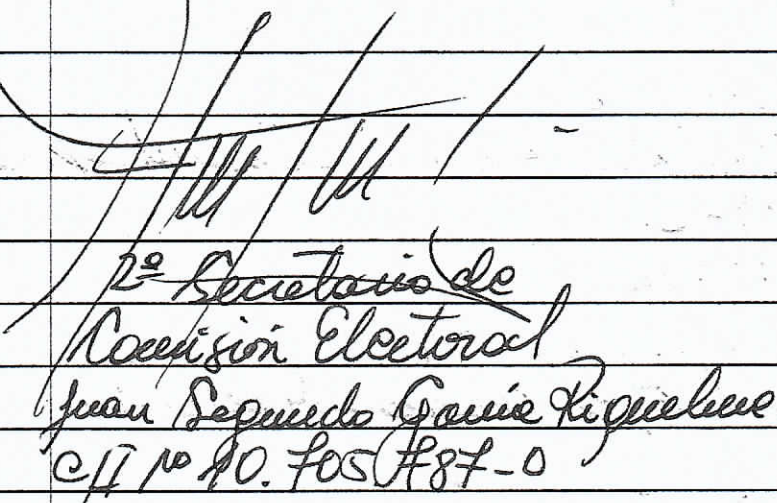 2º Secretario de
Comisión Electoral
Juan Segundo García Riquelme
CII Nº 10.705.787-0